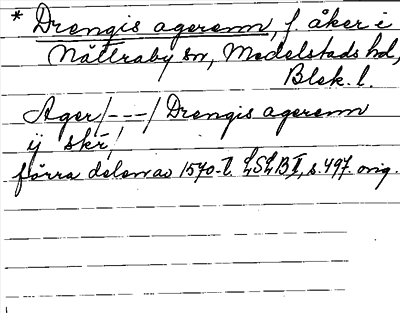 * Drengis agerenn, f. åker i
Nättraby sn, Medelstads hd,
Blek. l.
Ager /---/ Drengis agerenn
ij skr,
förra delen av 1540-t. LSLB II, s. 497. orig.